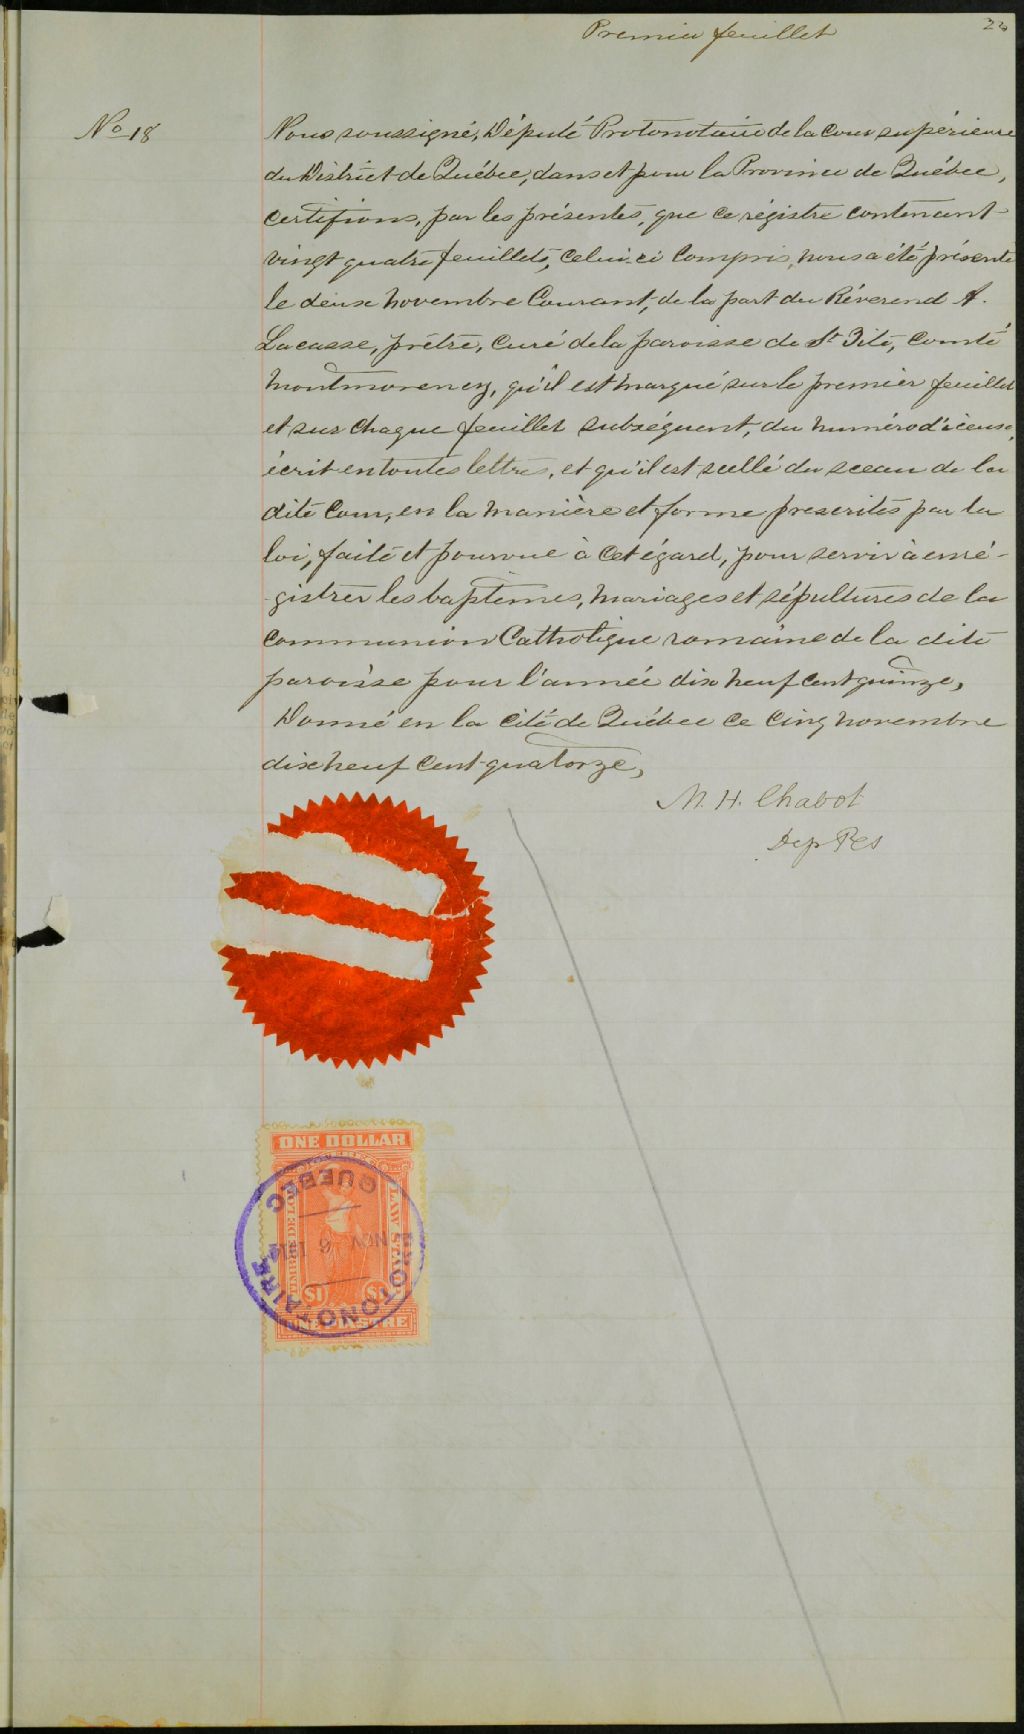 Premier feuillet
23
No 18
Nous soussigné, Député Protonotaire de la cour supérieure
du District de Québec, dans et pour la Province de Québec,
certifions, par les présentes, que ce régistre contenant
vingt quatre feuillets, celui ci compris, nous a été présenté
le deux novembre Courant, de la part du Révérend A.
Lacasse, prêtre, curé de la paroisse de St Tite, comté
Montmorency, qu'il est marqué sur le premier feuillet
et sur chaque feuillet subséquent, du numéro d'iceux,
écrit en toutes lettres, et qu'il est scellé du sceau de la
dite Cour, en la manière et forme prescrites par la
loi, faite et pourvue à cet égard, pour servir à enré-
gistrer les baptêmes, mariages et sépultures de la
communion Catholique romaine de la dite
paroisse pour l'année dix neuf cent quinze,
Donné en la cité de Québec ce cinq novembre
dix neuf cent quatorze,
M. H. Chabot
Dep PCS
ONE DOLLAR
TIMBRE DE LOI
LAW STAMP
QUEBEC
NOV 6 1914
PROTONOTAIRE
$1 $1
ONE PIASTRE